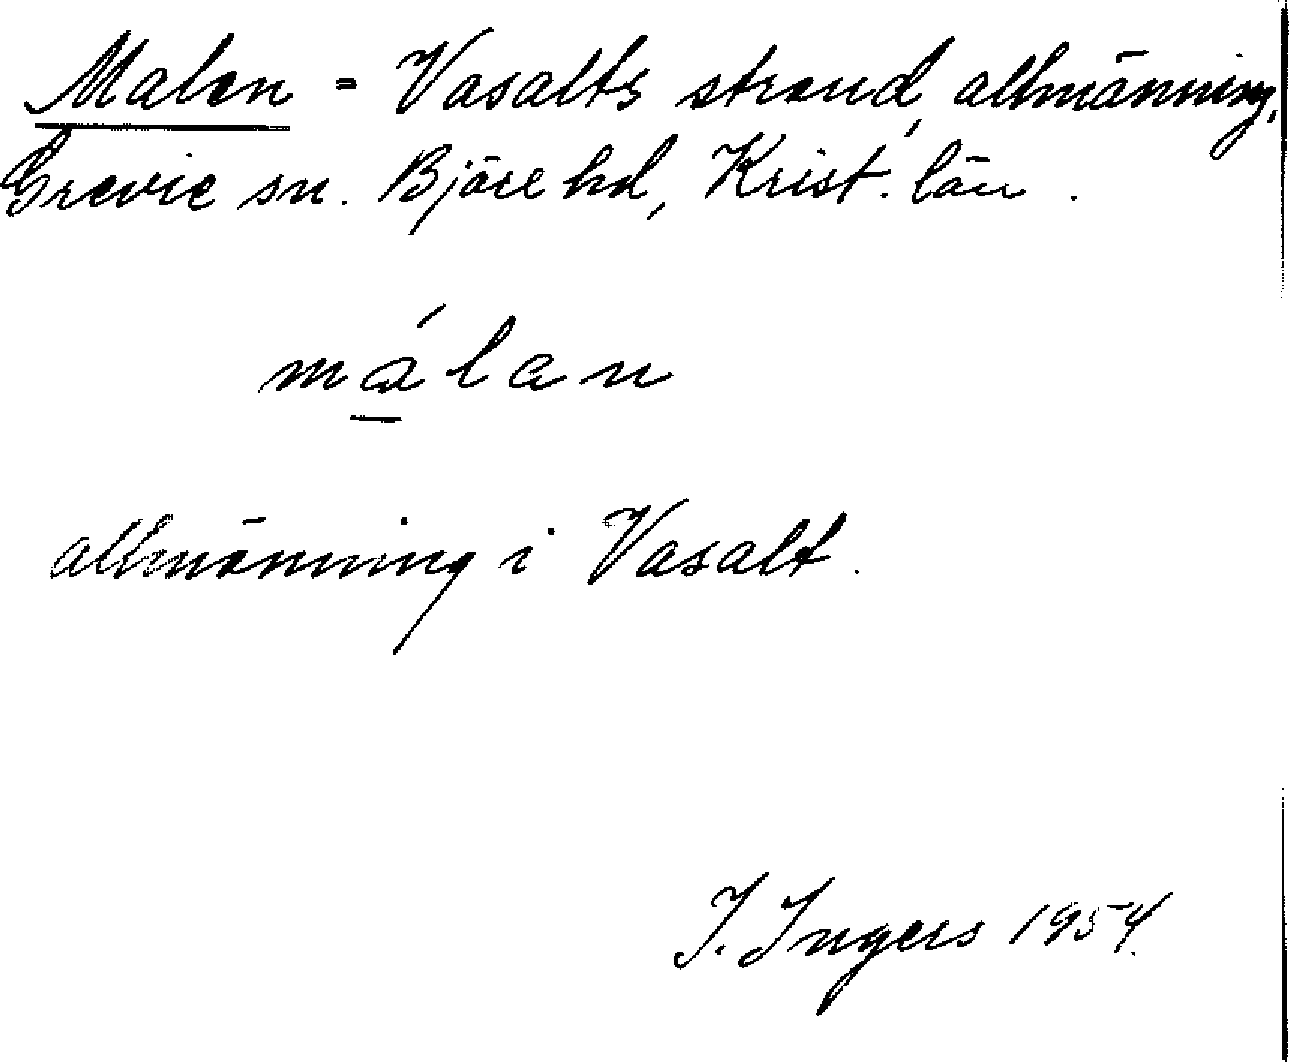 Malen = Vasalts strand, allmänning,
Grevie sn. Bjäre hd, Krist. län.
málan
allmänning i Vasalt.
I. Ingers 1954.